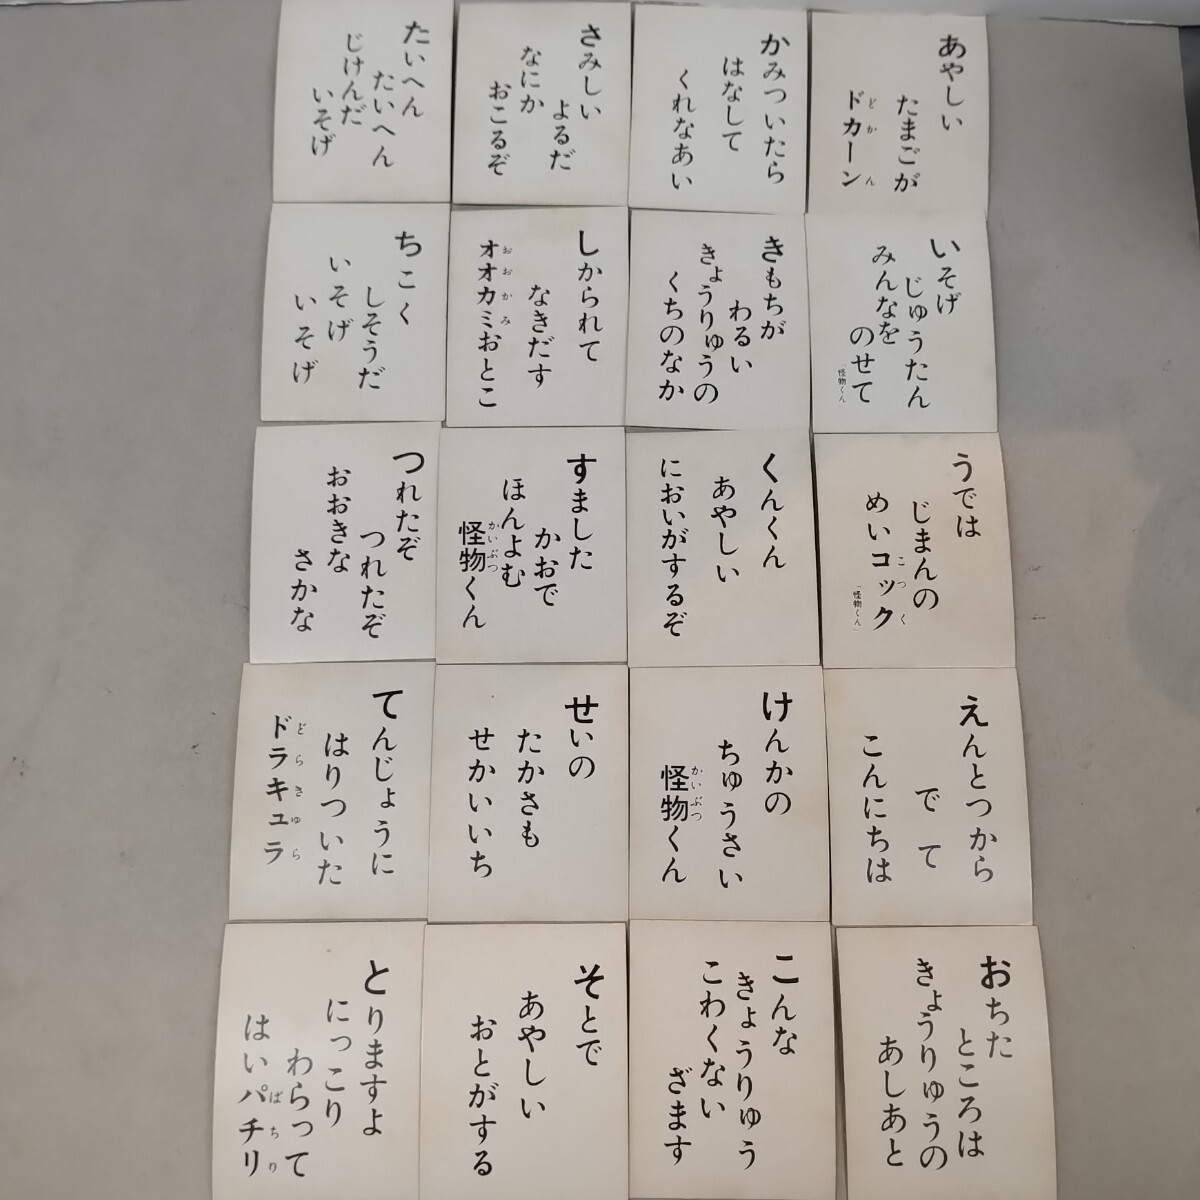 あやしい
たまごが
ドカーン
どかん
いそげ
じゅうたん
みんなを
のせて
「怪物くん」
うでは
じまんの
めいコック
こつく
「怪物くん」
えんとつから
でて
こんにちは
おちた
ところは
きょうりゅうの
あしあと
かみついたら
はなして
くれなあい
きもちが
わるい
きょうりゅうの
くちのなか
くんくん
あやしい
においがするぞ
けんかの
ちゅうさい
怪物くん
かいぶつ
こんな
きょうりゅう
こわくない
ざます
さみしい
よるだ
なにか
おこるぞ
しかられて
なきだす
オオカミおとこ
おおかみ
すました
かおで
ほんよむ
怪物くん
かいぶつ
せいの
たかさも
せかいいち
そとで
あやしい
おとがする
たいへん
たいへん
じけんだ
いそげ
ちこく
しそうだ
いそげ
いそげ
つれたぞ
つれたぞ
おおきな
さかな
てんじょうに
はりついた
ドラキュラ
どらきゆら
とりますよ
にっこり
わらって
はいパチリ
ぱちり